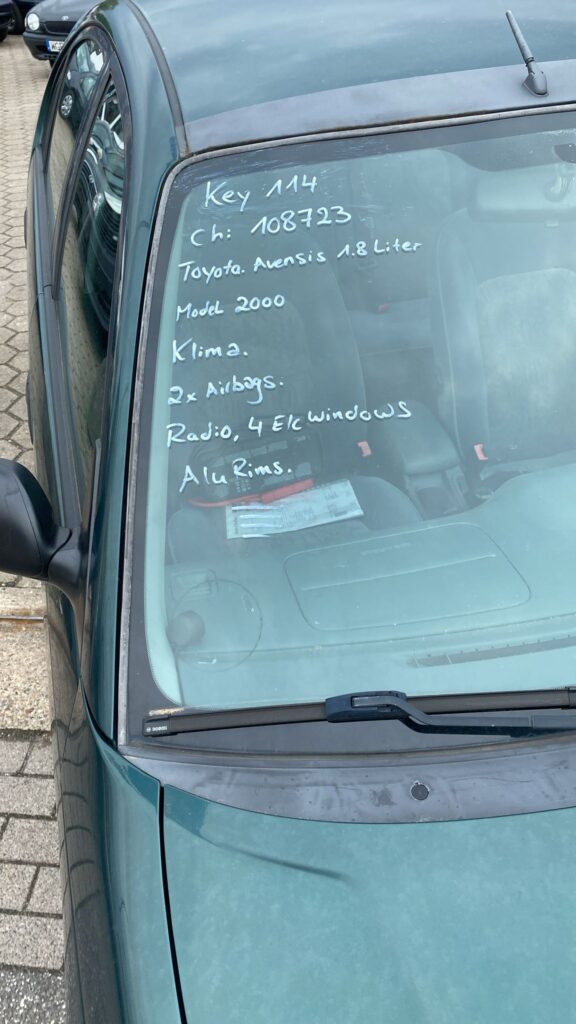 Key 114
Ch: 108723
Toyota. Avensis 1.8 Liter
Model 2000
Klima.
2x Airbags.
Radio, 4 Elc Windows
Alu Rims.
BOSCH